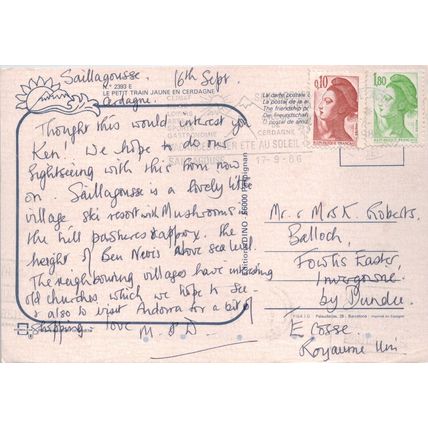 Saillagousse, 16th Sept.
N.° 2393 E
LE PETIT TRAIN JAUNE EN CERDAGNE
Cerdagne.
Thought this would interest you
Ken! We hope to do our
Sightseeing with this from now
on Saillagousse is a lovely little
village ski resort with Mushrooms in
the hill pastures & approx. the
height of Ben Nevis above sea level.
The neighbouring villages have interesting
old churches which we hope to see
& also to visit Andorra for a bit of
shopping. love M. & D.
Editions DINO - 66000 Perpignan
La carte postale
La postal de la
The friendship
Die Freundschaft
0,10
1,80
REPUBLIQUE FRANÇAISE
CERDAGNE
ETE AU SOLEIL
17-9-86
GASTRONOMIE
Mr. & Mrs K. Roberts,
Balloch,
Fowlis Easter,
Invergowrie,
by Dundee
Ecosse.
Royaume Uni.